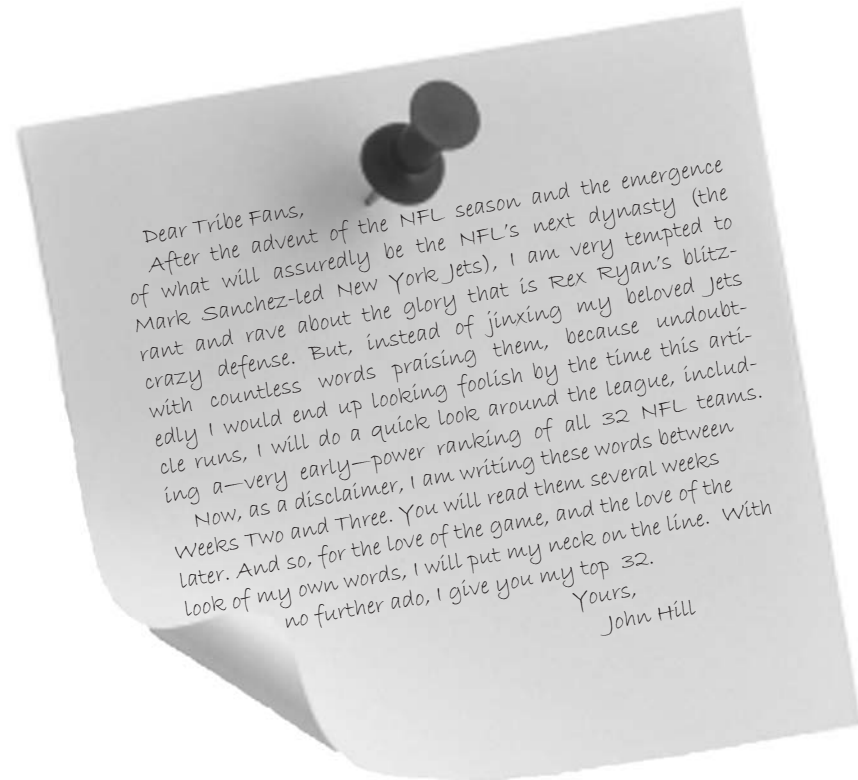 Dear Tribe Fans,
After the advent of the NFL season and the emergence
of what will assuredly be the NFL's next dynasty (the
Mark Sanchez-led New York Jets), I am very tempted to
rant and rave about the glory that is Rex Ryan's blitz-
crazy defense. But, instead of jinxing my beloved Jets
with countless words praising them, because undoubt-
edly I would end up looking foolish by the time this arti-
cle runs, I will do a quick look around the league, includ-
ing a—very early—power ranking of all 32 NFL teams.
Now, as a disclaimer, I am writing these words between
Weeks Two and Three. You will read them several weeks
later. And so, for the love of the game, and the love of the
look of my own words, I will put my neck on the line. With
no further ado, I give you my top 32.
Yours,
John Hill